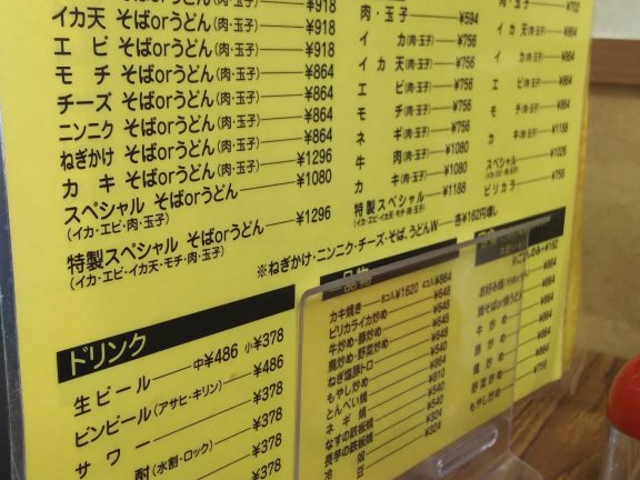 ¥918
イカ天 そばorうどん(肉・玉子) ¥918
エビ そばorうどん(肉・玉子) ¥918
モチ そばorうどん(肉・玉子) ¥864
チーズ そばorうどん(肉・玉子) ¥864
ニンニク そばorうどん(肉・玉子) ¥864
ねぎかけ そばorうどん(肉・玉子) ¥864
カキ そばorうどん(肉・玉子) ¥1296
スペシャル そばorうどん ¥1080
(イカ・エビ・肉・玉子)
特製スペシャル そばorうどん ¥1296
(イカ・エビ・イカ天・モチ・肉・玉子)
肉・玉子 ¥594
イカ(肉・玉子) ¥756
イカ天(肉・玉子) ¥756
エビ(肉・玉子) ¥756
モチ(肉・玉子) ¥756
ネギ(肉・玉子) ¥756
牛肉(肉・玉子) ¥1080
カキ(肉・玉子) ¥1080
特製スペシャル ¥1188
(イカ・エビ・イカ天・モチ・肉・玉子)
肉・玉子 ¥702
イカ(肉・玉子) ¥864
イカ天(肉・玉子) ¥864
エビ(肉・玉子) ¥864
モチ(肉・玉子) ¥864
カキ(肉・玉子) ¥1188
スペシャル
(イカ・エビ・肉・玉子)
ピリカラ ¥756
※ねぎかけ・ニンニク・チーズ・そば、うどんW 各¥162円増し
ドリンク
生ビール 中¥486 小¥378
ビンビール(アサヒ・キリン) ¥486
サワー ¥378
酎(水割・ロック) ¥378
¥378
カキ焼き 8コ入¥1620 4コ入¥864
ピリカライカ炒め ¥648
牛炒め・豚炒め ¥648
鶏炒め・野菜炒め ¥648
ねぎ塩豚トロ ¥540
もやし炒め
とんぺい焼
ネギ焼
なすの鉄板焼
長芋の鉄板焼 ¥324
¥324
お好み焼
焼そばor焼うどん ¥864
牛炒め ¥864
豚炒め ¥864
鶏炒め ¥864
野菜炒め
もやし炒め